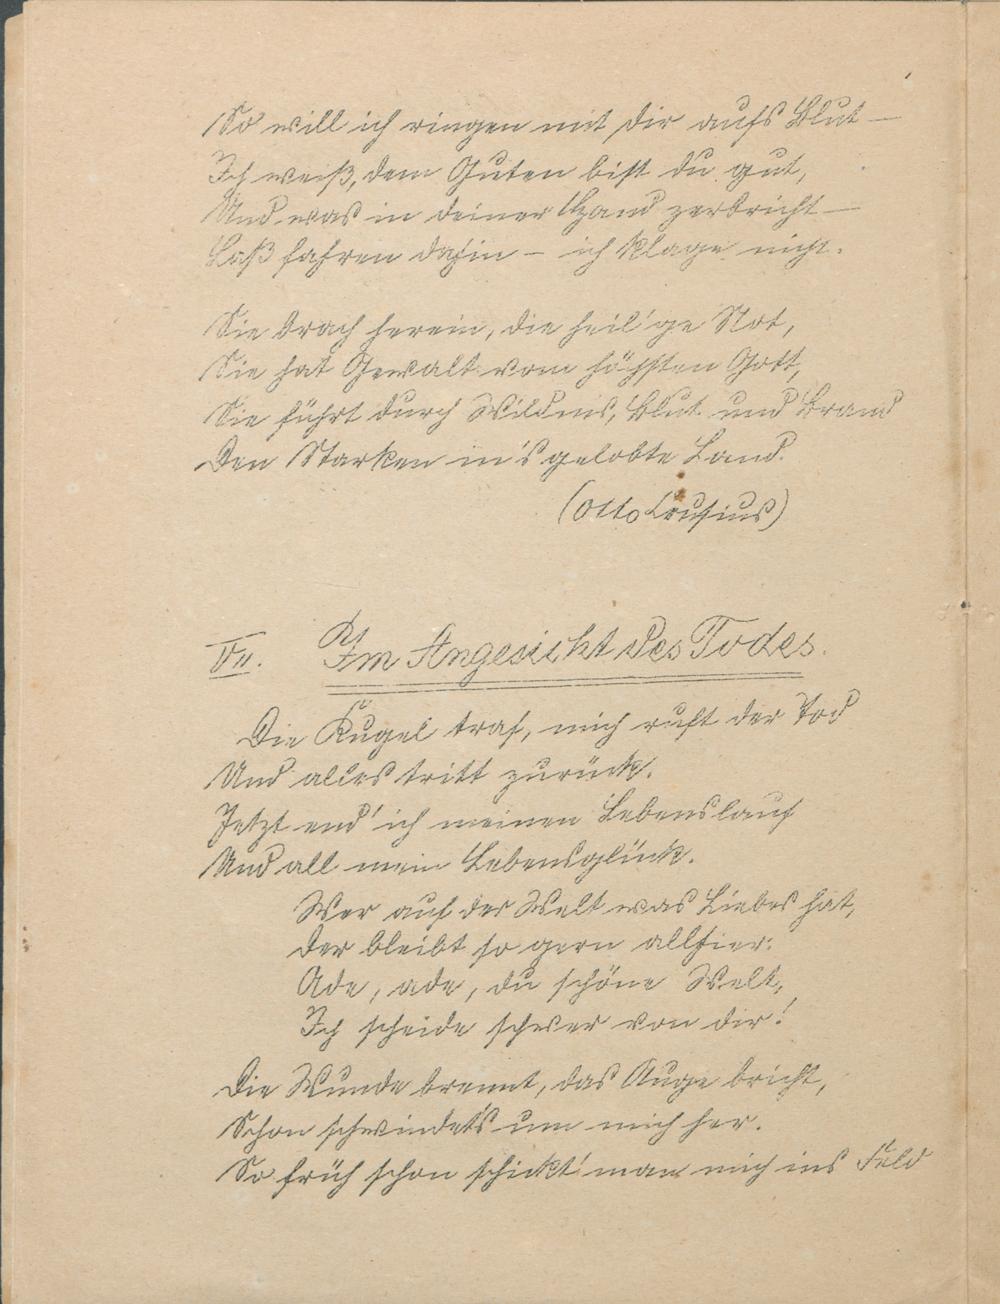 So will ich ringen mit dir aufs Blut —
Ich weiß, dem Guten bist du gut,
Und was in deiner Hand zerbricht —
Laß fahren dahin — ich klage nicht.
Sie brach herein, die heil'ge Not,
Sie hat Gewalt vom höchsten Gott,
Sie führt durch Wildnis, Blut und Brand
Den Starken in's gelobte Land.
(Otto Crusius)
VII. Im Angesicht des Todes.
Die Kugel traf, mich ruft der Tod
Und alles tritt zurück.
Jetzt end' ich meinen Lebenslauf
Und all mein Lebensglück.
Wer auf der Welt was Liebes hat,
Der bleibt so gern allhier:
Ade, ade, du schöne Welt,
Ich scheide schwer von dir!
Die Wunde brennt, das Auge bricht,
Schon schwindet's um mich her.
So früh schon schickt' man mich ins Feld